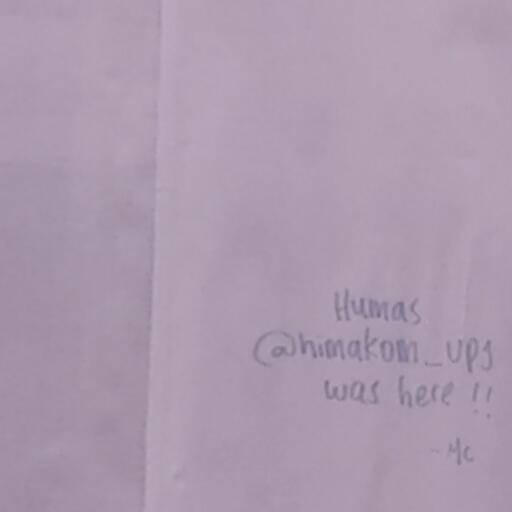 Humas
@himakom_ups
was here !!
- Mc